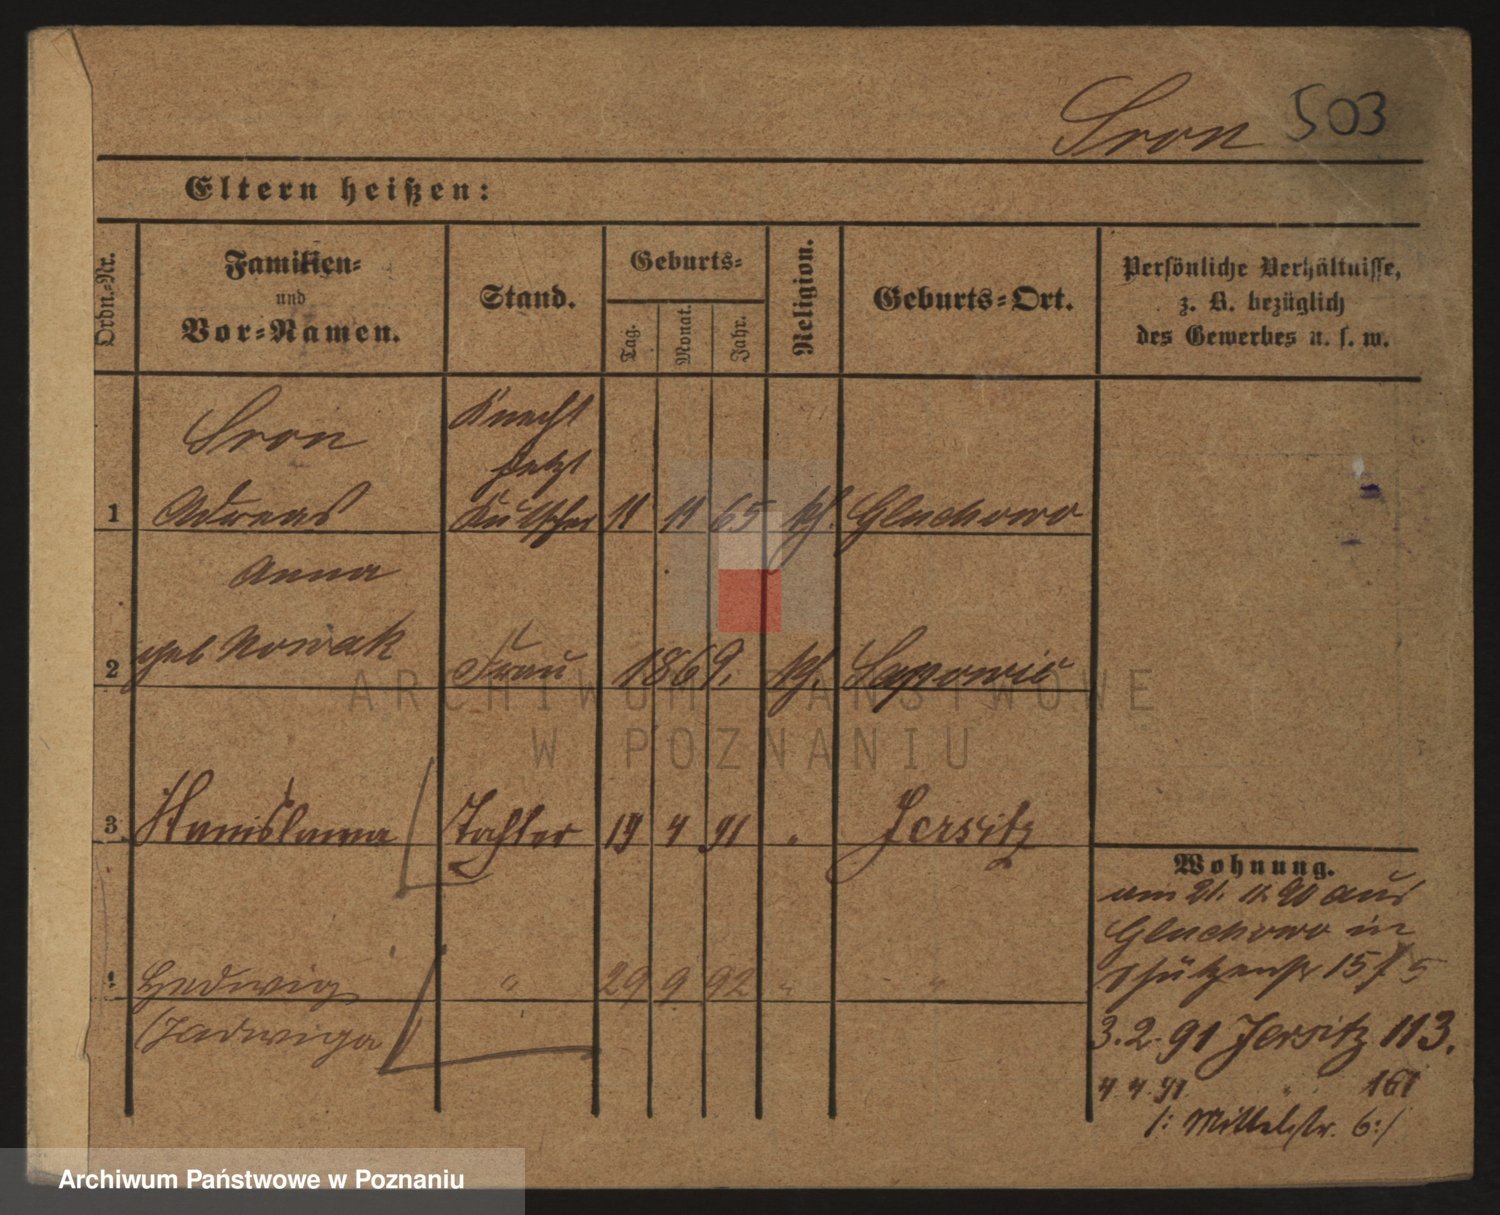 Sron 503
Eltern heißen:
Ordn.-Nr. Familien- und Vor-Namen. Stand. Geburts- Tag. Monat. Jahr. Religion. Geburts-Ort. Persönliche Verhältnisse, z. B. bezüglich des Gewerbes u. s. w.
Sron Knecht
jetzt
1 Adreas Kutscher 11 11 65 kth. Gluchowo
Anna
2 geb Nowak Frau 1869. kth. Sapowic
3 Stanislawa Tochter 19 4 91 " Jersitz
Wohnung.
am 21. 11. 90 aus
Gluchowo in
Hedwig " 29 9 92 " "
Schützenstr 15
(Jadwiga
3.2.91 Jersitz 113.
4.4.91 " 161
/: Mittelstr. 6:/
ARCHIWUM PAŃSTWOWE
W POZNANIU
Archiwum Państwowe w Poznaniu